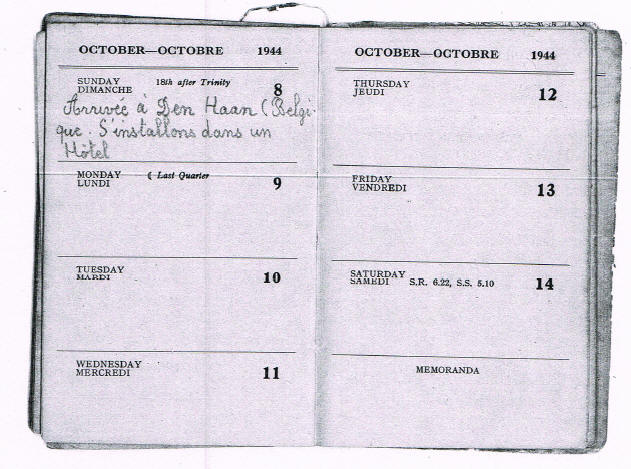 OCTOBER—OCTOBRE 1944
SUNDAY 18th after Trinity
DIMANCHE 8
Arrivée à Den Haan (Belgi-
que. S'installons dans un
Hôtel
MONDAY ☾ Last Quarter
LUNDI 9
TUESDAY
MARDI 10
WEDNESDAY
MERCREDI 11
OCTOBER—OCTOBRE 1944
THURSDAY
JEUDI 12
FRIDAY
VENDREDI 13
SATURDAY
SAMEDI S.R. 6.22, S.S. 5.10 14
MEMORANDA